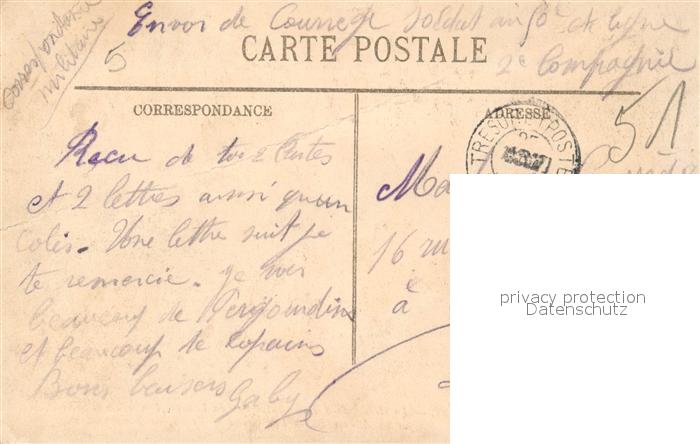 Envoi de Courrège soldat au 50e de ligne
2e Compagnie
Correspondance
militaire
5
CARTE POSTALE
51
CORRESPONDANCE
ADRESSE
TRESOR ET POSTES
Recu de toi 2 Cartes
et 2 lettres ainsi qu'un
Colis. Une lettre suit je
te remercie. je vois
beaucoup de Perigourdins
et beaucoup de copains
Bons baisers Gaby
16
à
privacy protection
Datenschutz